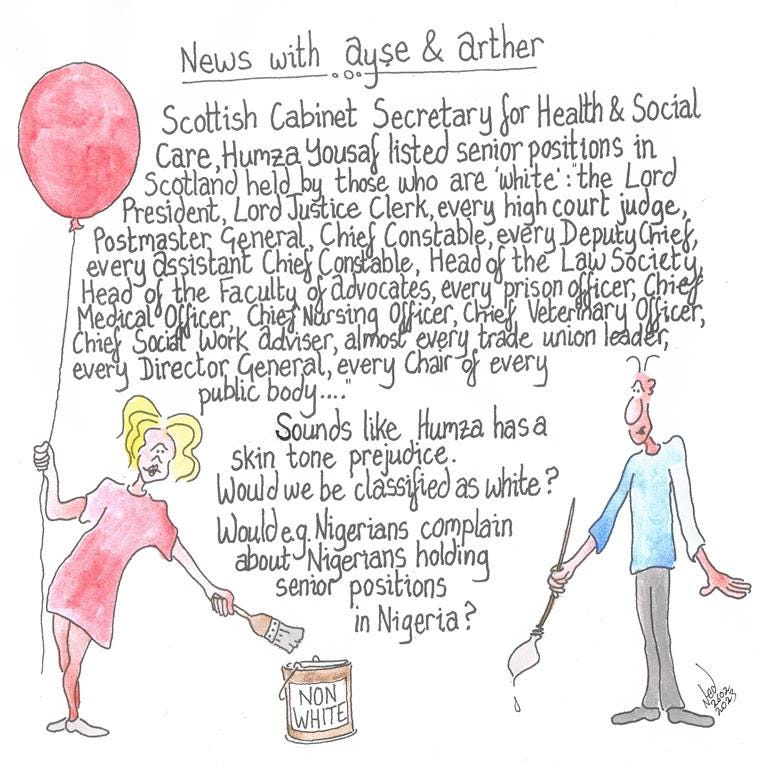 News with ayşe & arther
Scottish Cabinet Secretary for Health & Social
Care, Humza Yousaf listed senior positions in
Scotland held by those who are 'white': "the Lord
President, Lord Justice Clerk, every high court judge,
Postmaster General, Chief Constable, every Deputy Chief,
every assistant Chief Constable, Head of the Law Society,
Head of the Faculty of advocates, every prison officer, Chief
Medical Officer, Chief Nursing Officer, Chief Veterinary Officer,
Chief Social Work adviser, almost every trade union leader,
every Director General, every Chair of every
public body...."
Sounds like Humza has a
skin tone prejudice.
Would we be classified as white?
Would e.g. Nigerians complain
about Nigerians holding
senior positions
in Nigeria?
NON
WHITE
Ned
2602
2023